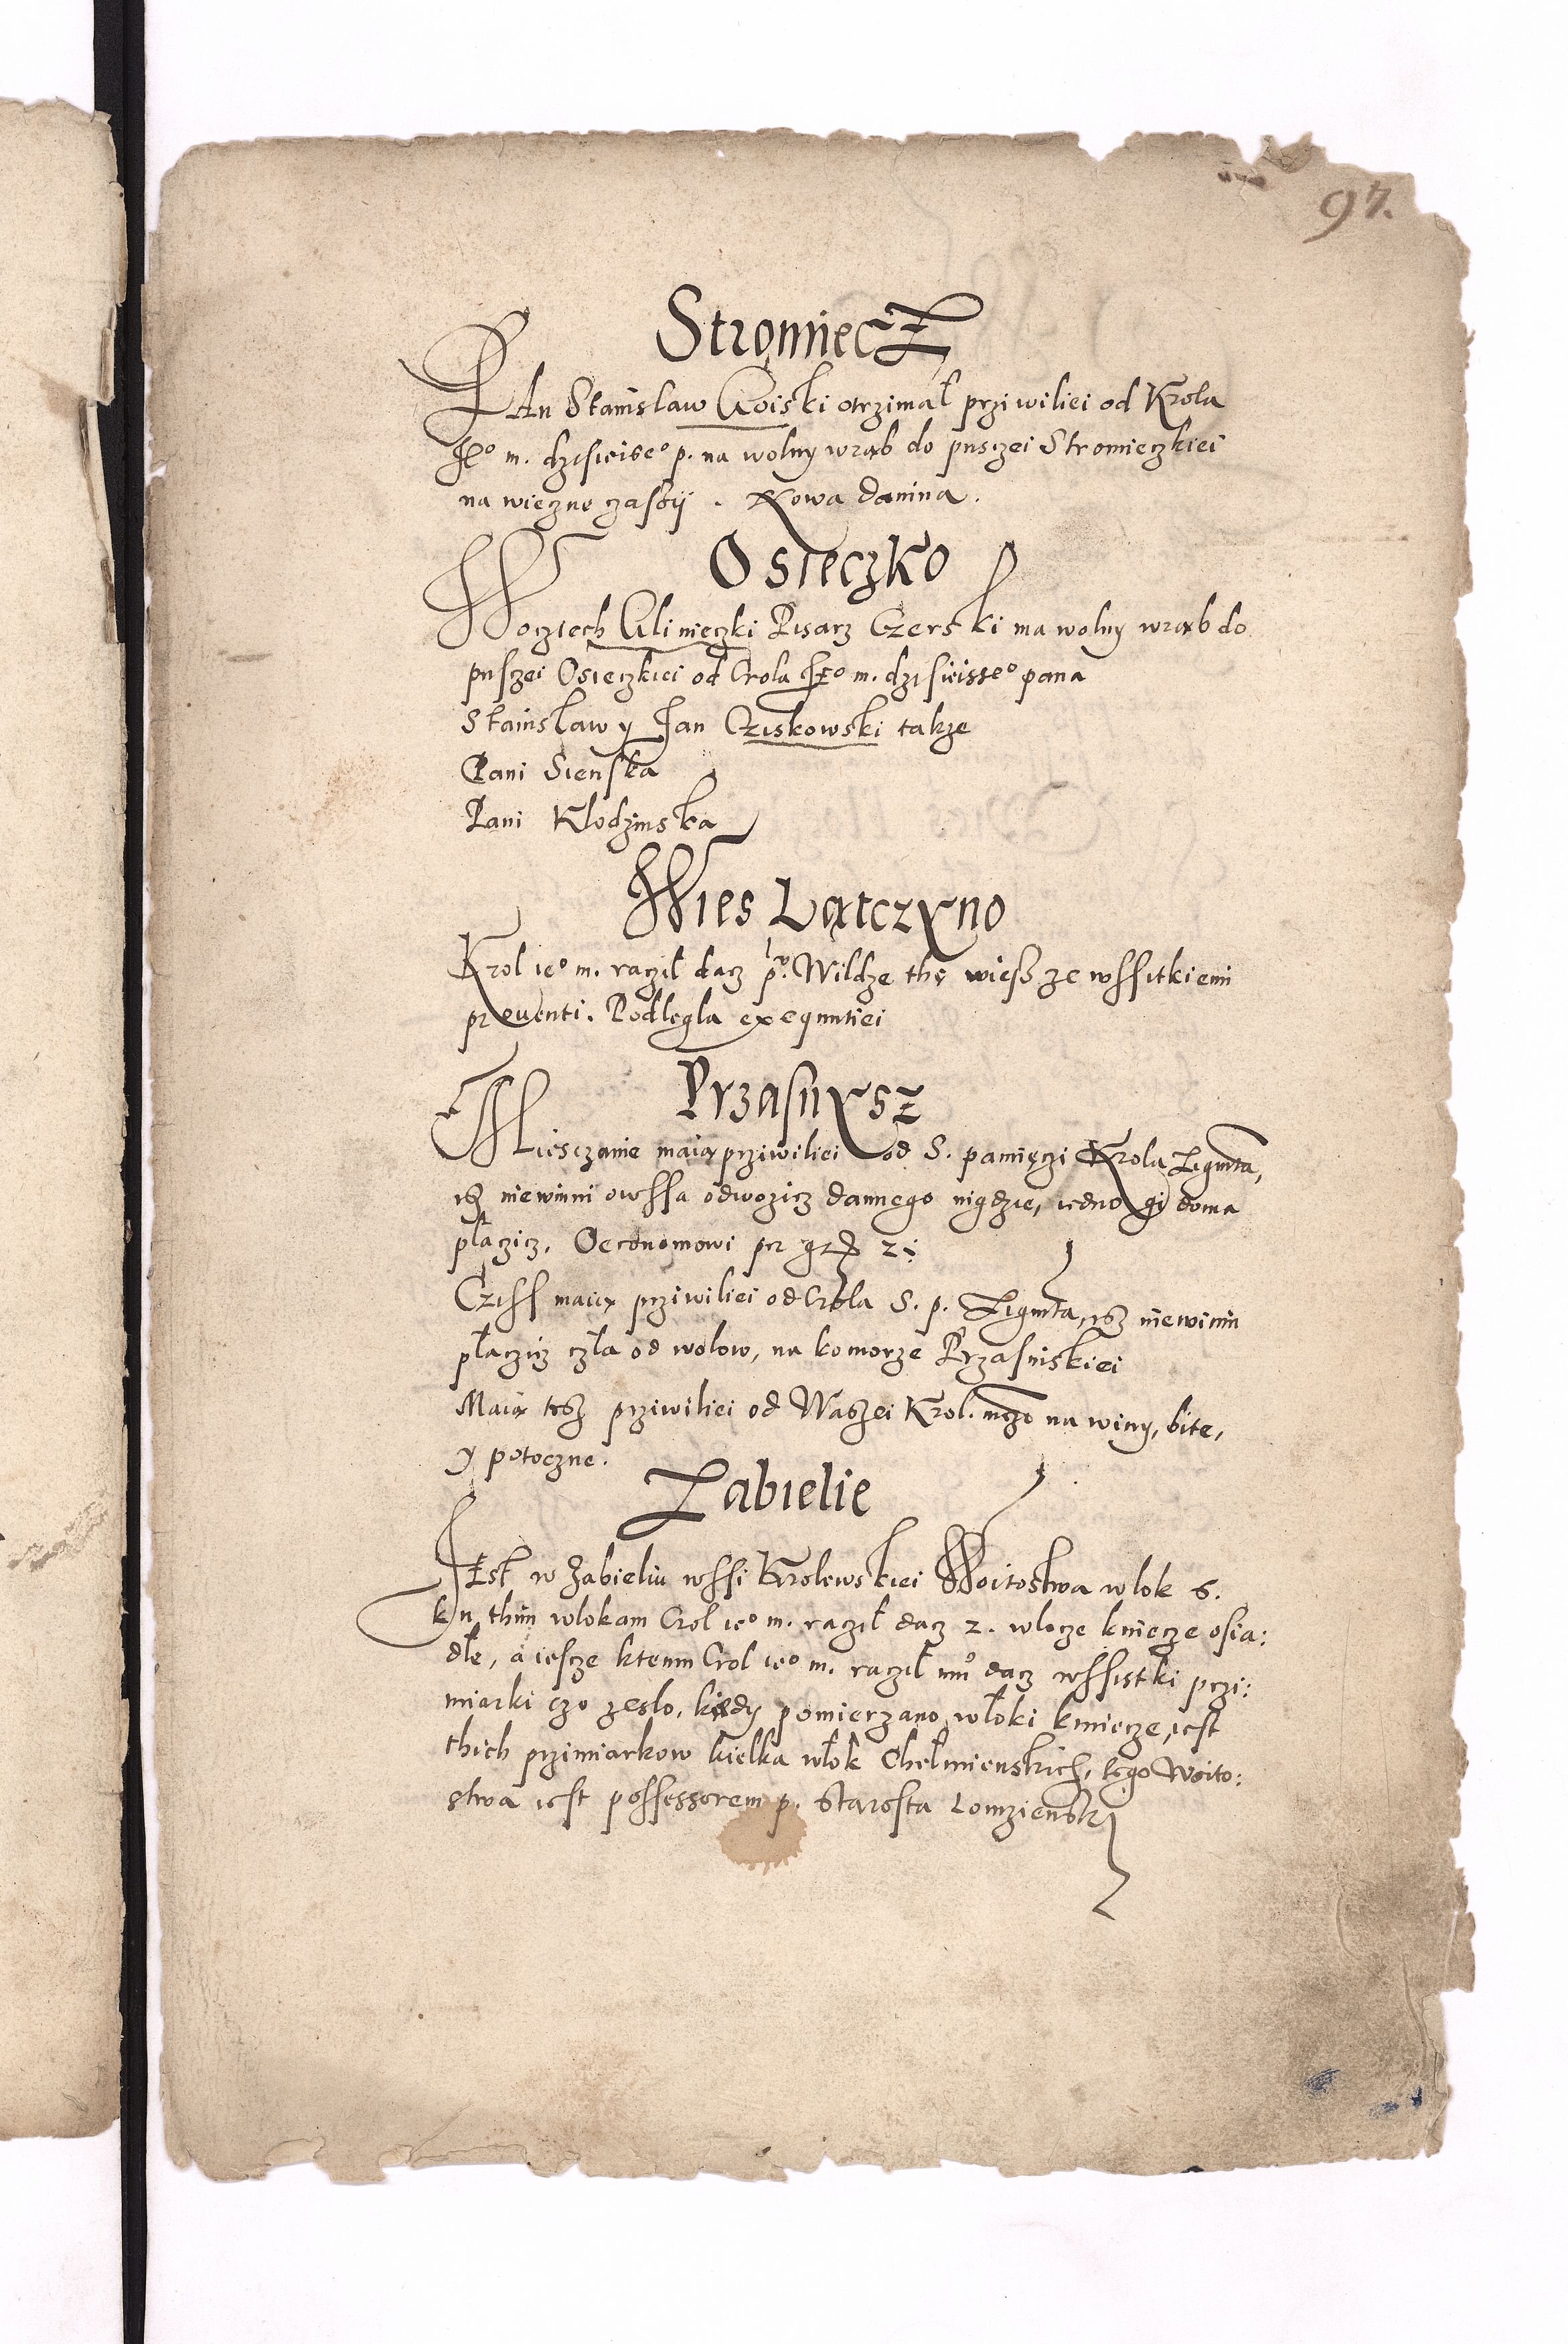 97.
Stromiecz
PAn Stanislaw Goiski otrzimał prziwiliei od Krola
Je° m. dzisieise° p. na wolny wrąb do pusczei Stromieczkiei
na wieczne czassy. Nowa danina.
Osieczko
Wocziech Glinieczki Pisarz Czerski ma wolny wrąb do
puszei Osieczkiei od Crola Je° m. dzisieisse° pana
Stanisław y Jan Cziskowski takze
Pani Sienska
Pani Klodzinska
Wies Latczyno
Krol ie° m. raczil dacz p. Wildze thę wiess ze wssitkiemi
preventi. Podlegla exequutiei
Przasnysz
Miesczanie maią prziwiliei od S. pamięczi Krola Zigmta,
isz niewinni owssa odwozicz dannego nigdzie, iedno gi doma
płaczicz, Oeconomowi per
Cziss maią prziwiliei od Crola S. p. Zigmta, isz niewinni
płaczicz czła od wolow, na komorze Przasniskiei
Maią tesz prziwiliei od Waszei Krol. mczi na winy, bite,
y potoczne.
Zabielie
JEst w Zabieliu wssi Krolewskiei Woitostwa wlok 6.
ku thim wlokam Crol ie° m. raczil dacz 2. wlocze kmiecze osia:
dłe, a iescze ktemu Crol ie° m. raczil mu dacz wssistki przi:
miarki czo zesło, kiedy pomierzano włoki kmiecze, iest
thich przimiarkow kielka włok Chełmienskich, tego Woito:
stwa iest possessorem p. Starosta Lomzienski